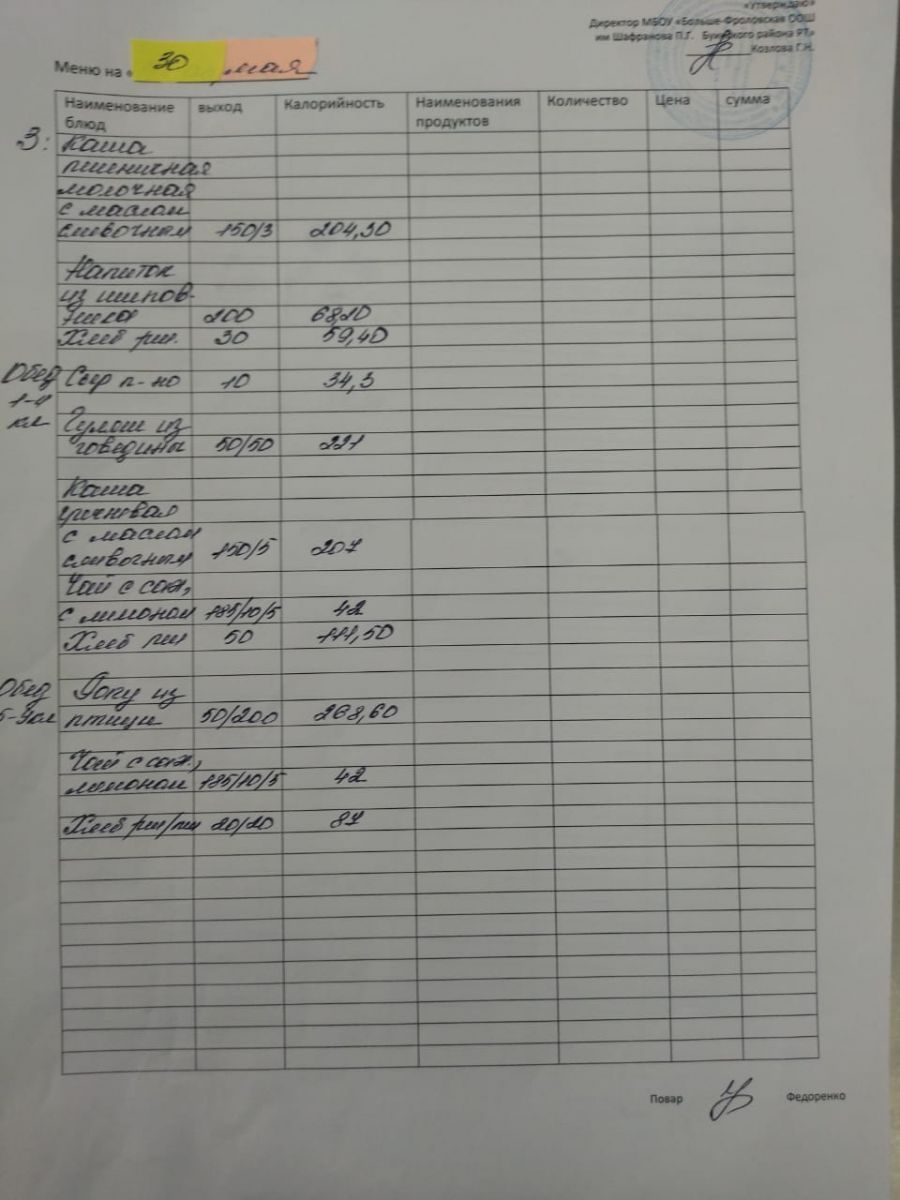 «Утверждаю»
Директор МБОУ «Больше-Фроловская ООШ
им Шафранова П.Г. Буинского района РТ»
Козлова Г.Н.
Меню на « 30 мая
Наименование блюд выход Калорийность Наименования продуктов Количество Цена сумма
З: Каша
пшеничная
молочная
с маслом
сливочным 150/3 204,30
Напиток
из шипов-
ника 200 68,20
Хлеб рж. 30 59,40
Обед Сыр п-но 10 34,3
1-4
кл Гуляш из
говядины 50/50 221
Каша
гречневая
с маслом
сливочным 150/5 207
Чай с сах,
с лимоном 185/10/5 42
Хлеб пш 50 111,50
Обед Рагу из
5-9кл птицы 50/200 268,60
Чай с сах.,
лимоном 185/10/5 42
Хлеб рж/пш 20/20 87
Повар Федоренко